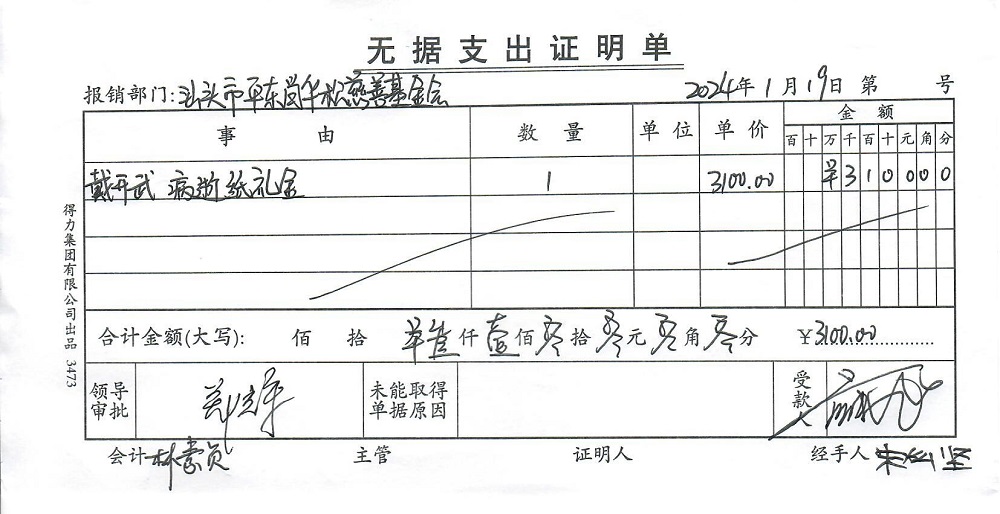 无据支出证明单
报销部门:汕头市平东尚华松慈善基金会 2024年1月19日 第 号
事由 数量 单位 单价 金额
百十万千百十元角分
戴开武 病逝纸礼金 1 3100.00 ¥310000
合计金额(大写): 佰 拾 仟壹佰零拾零元零角零分 ¥3100.00
领导审批 未能取得单据原因 受款人
会计 主管 证明人 经手人
得力集团有限公司出品 3473